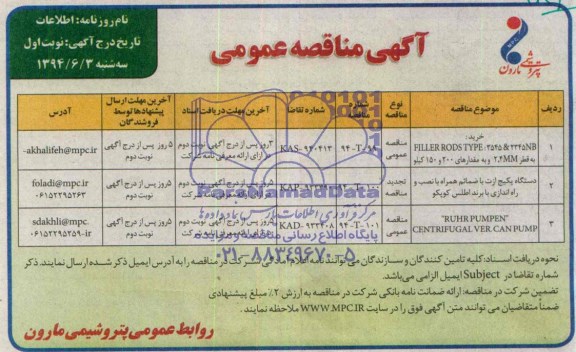 نام روزنامه: اطلاعات
تاریخ درج آگهی: نوبت اول
سه شنبه ۱۳۹۴/۶/۳
آگهی مناقصه عمومی
پتروشیمی مارون
ردیف
موضوع مناقصه
نوع مناقصه
شماره مناقصه
شماره تقاضا
آخرین مهلت دریافت اسناد
آخرین مهلت ارسال پیشنهادها توسط فروشندگان
آدرس
۱
خرید:
FILLER RODS TYPE:
به قطر ۲،۴MM و به مقدارهای ۲۰۰ و ۱۵۰ کیلو
مناقصه عمومی
KAS-۹۴۰۴۱۳
نوبت دوم
با ارائه معرفی نامه شرکت
۵روز پس از درج آگهی نوبت دوم
akhalifeh@mpc.ir-
۲
دستگاه پکیج ازت با ضمائم همراه با نصب و راه اندازی با برند اطلس کوپکو
تجدید مناقصه
۵روز پس از درج آگهی نوبت دوم
foladi@mpc.ir
۰۶۱۵۲۲۹۵۲۶۳
۳
"RUHR PUMPEN"
CENTRIFUGAL VER CAN PUMP
مناقصه عمومی
۹۴-T-۱۰۱
KAD-۹۳۳۳۰۸
۵روز پس از درج آگهی نوبت دوم
sdakhli@mpc.
ir-۰۶۱۵۲۲۹۵۲۵۹
ParsNamadData
مرکز فرآوری اطلاعات پارس نماد داده ها
پایگاه اطلاع رسانی مناقصه و مزایده
۰۲۱-۸۸۳۴۹۶۷۰-۵
نحوه دریافت اسناد: کلیه تامین کنندگان و سازندگان می توانند نامه اعلام آمادگی شرکت در مناقصه را به آدرس ایمیل ذکر شده ارسال نمایند. ذکر
شماره تقاضا در Subject ایمیل الزامی می باشد.
تضمین شرکت در مناقصه: ارائه ضمانت نامه بانکی شرکت در مناقصه به ارزش ۲٪ مبلغ پیشنهادی
ضمناً متقاضیان می توانند متن آگهی فوق را در سایت WWW.MPC.IR ملاحظه نمایند.
روابط عمومی پتروشیمی مارون